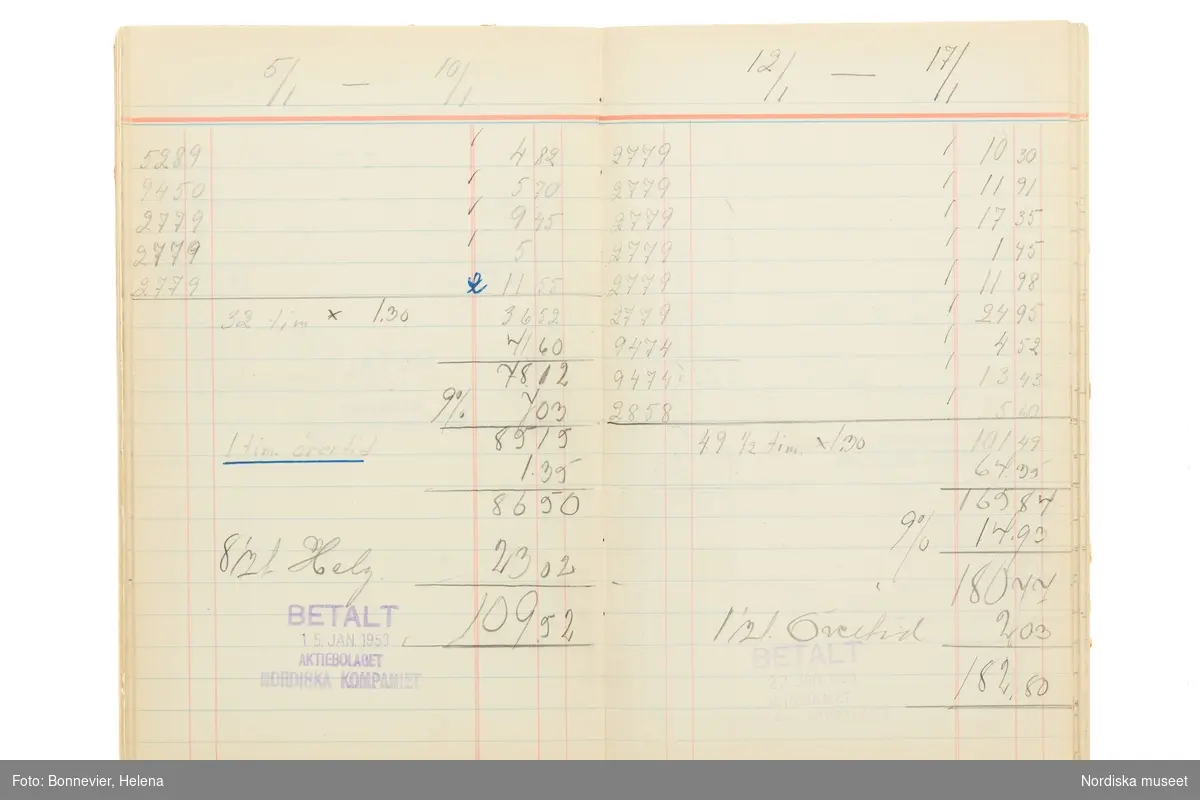 5/1 — 10/1
5289 / 4 82
9450 / 5 70
2779 / 9 45
2779 / 5
2779 2 11 55
32 tim × 1.30 36 52
41 60
78.12
9% 7.03
85 15
1 tim. övertid
1.35
86 50
8 1/2 t Helg. 23 02
109.52
BETALT
15. JAN. 1953
AKTIEBOLAGET
NORDISKA KOMPANIET
12/1 — 17/1
2779 / 10 30
2779 / 11 91
2779 / 17 35
2779 / 1 45
2779 / 11 98
2779 / 24 95
9474 / 4 52
9474 / 13 43
2858 / 5 60
49 1/2 tim. × 1.30 101 49
64.35
165 84
9% 14.93
180 77
1 1/2 t. Övertid 2 03
182.80
BETALT
Foto: Bonnevier, Helena
Nordiska museet